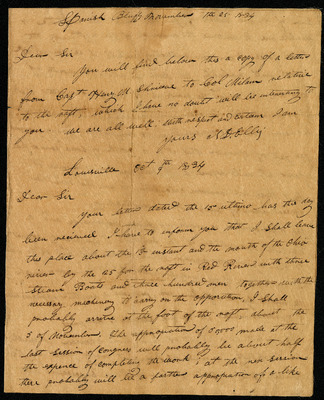 Spanish Bluff November the 25 1834
Dear Sir
You will find below this a copy of a letter
from Capt Henry M. Shreeve to Col Milam relitive
to the raft, which I have no doubt will be interesting to
you we are all well, with respect and esteem I am
yours
Louisville Oct 9th 1834
Dear Sir
your letter dated the 15 ultimo, has this day
been received I have to inform you that I shall leave
this place about the 15 instant and the mouth of the Ohio
river by the 25 for the raft in Red River with three
Steam Boats and three hundred men together with the
necessary machinery to carry on the opperation, I shall
probably arrive at the foot of the raft, about the
5 of November, the appropriation of 50000 made at the
last session of Congress will probably be about half
the expence of completing the work, at the next session
there probably will be a further appropriation of a like